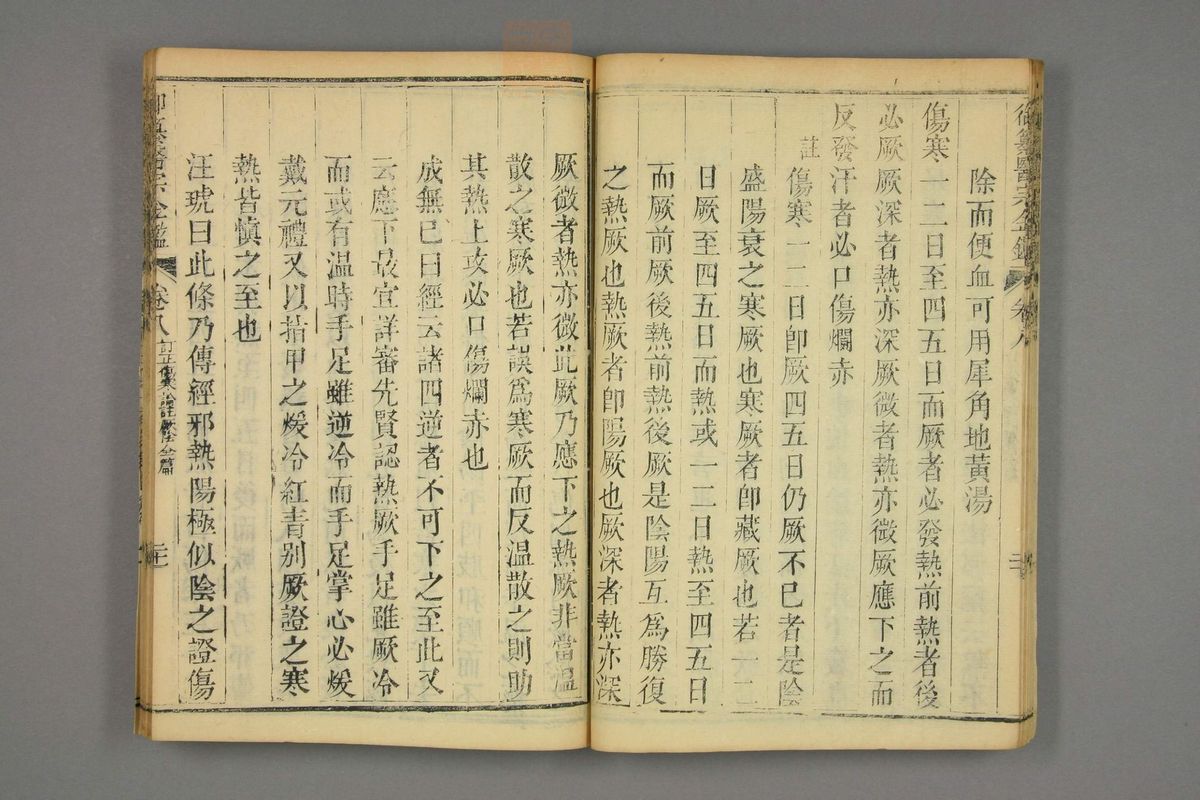 御纂醫宗金鑑 卷八
除而便血可用犀角地黃湯
傷寒一二日至四五日而厥者必發熱前熱者後
必厥厥深者熱亦深厥微者熱亦微厥應下之而
反發汗者必口傷爛赤
註傷寒一二日卽厥四五日仍厥不已者是陰
盛陽衰之寒厥也寒厥者卽藏厥也若一二
日厥至四五日而熱或一二日熱至四五日
而厥前厥後熱前熱後厥是陰陽互爲勝復
之熱厥也熱厥者卽陽厥也厥深者熱亦深
厥微者熱亦微此厥乃應下之熱厥非當溫
散之寒厥也若誤爲寒厥而反溫散之則助
其熱上攻必口傷爛赤也
成無已曰經云諸四逆者不可下之至此又
云應下最宜詳審先賢認熱厥手足雖厥冷
而或有溫時手足雖逆冷而手足掌心必煖
戴元禮又以指甲之煖冷紅青别厥證之寒
熱皆愼之至也
汪琥曰此條乃傳經邪熱陽極似陰之證傷
御纂醫宗金鑑 卷八 訂正傷寒論註厥陰全篇 二十